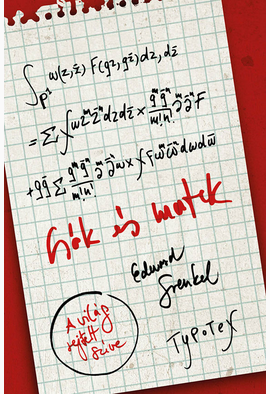 ∫_{P¹} ω(z,z̄) F(qz,q̄z̄) dz, dz̄
= Σ ∫ ω z^m z̄^n̄ dz dz̄ × (q^m q̄^n̄)/(m! n̄!) ∂^m ∂̄^n̄ F
+ q q̄ Σ (q^m q̄^n̄)/(m! n̄!) ∂^m ∂̄^n̄ ω × ∫ F ω^m ω̄^n̄ dω dω̄
Sák és matek
Edward
Frenkel
A világ
rejtett
szíve
TyPoTeX